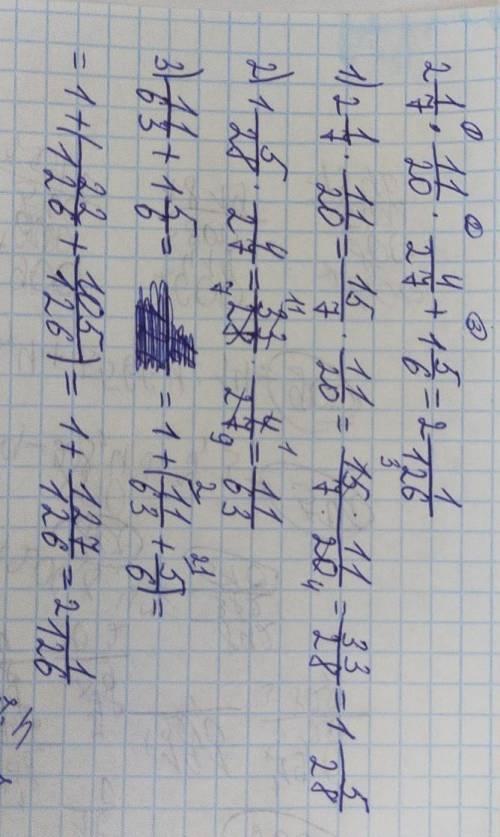 ① ② ③
2 1/7 · 11/20 · 4/27 + 1 5/6 = 2 1/126
1) 2 1/7 · 11/20 = 15/7 · 11/20 = (15 · 11)/(7 · 20) = 33/28 = 1 5/28
2) 1 5/28 · 4/27 = 33/28 · 4/27 = 11/63
3) 11/63 + 1 5/6 = = 1 + (11/63 + 5/6) =
= 1 + (22/126 + 105/126) = 1 + 127/126 = 2 1/126